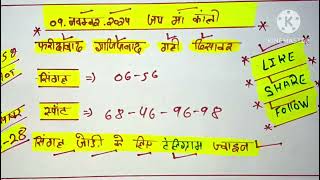 09. नवम्बर. 2024 जय माँ काली
KINEMASTER
फरीदाबाद गाजियाबाद गली दिसावर
सिंगल ⇒ 06-56
LIKE
SHARE
Follow
स्पोट ⇒ 68-46-96-98
-28
सिंगल जोड़ी के लिए टेलीग्राम ज्वाइन